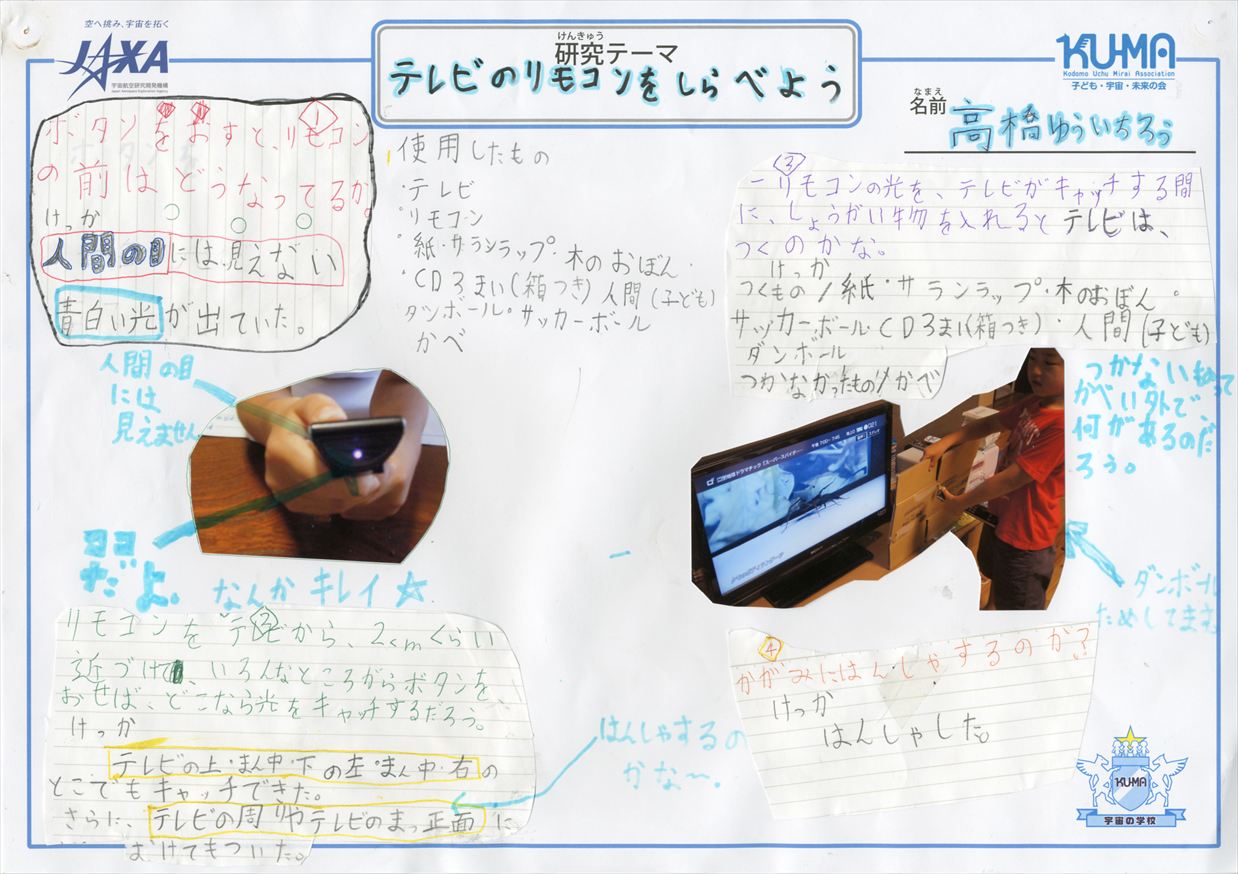 空へ挑み、宇宙を拓く
JAXA
宇宙航空研究開発機構
Japan Aerospace Exploration Agency
けんきゅう
研究テーマ
テレビのリモコンをしらべよう
KU-MA
Kodomo Uchu Mirai Association
子ども・宇宙・未来の会
なまえ
名前
高橋ゆういちろう
①
ボタンをおすと、リモコン
の前はどうなってるか。
けっか
人間の目には見えない
青白い光が出ていた。
人間の目
には
見えません
ココ
だよ。
なんかキレイ☆
使用したもの
・テレビ
・リモコン
・紙・サランラップ・木のおぼん・
・CD3まい(箱つき)人間(子ども)
ダンボール・サッカーボール
かべ
②
リモコンをテレビから、2cmくらい
近づけて、いろんなところからボタンを、
おせば、どこなら光をキャッチするだろう。
けっか
テレビの上・まん中・下の左・まん中・右の
どこでもキャッチできた。
さらに、テレビの周りやテレビのまっ正面に
むけてもついた。
はんしゃするの
かな〜。
③
リモコンの光を、テレビがキャッチする間
に、しょうがい物を入れるとテレビは、
つくのかな。
けっか
つくもの/紙・サランラップ・木のおぼん。
サッカーボール・CD3まい(箱つき)・人間(子ども)
ダンボール
つかなかったもの/かべ
つかない
かべい外で
何があるのだ
ろう。
021
ダンボール
ためしてます
④
かがみにはんしゃするのか?
けっか
はんしゃした。
KU-MA
宇宙の学校